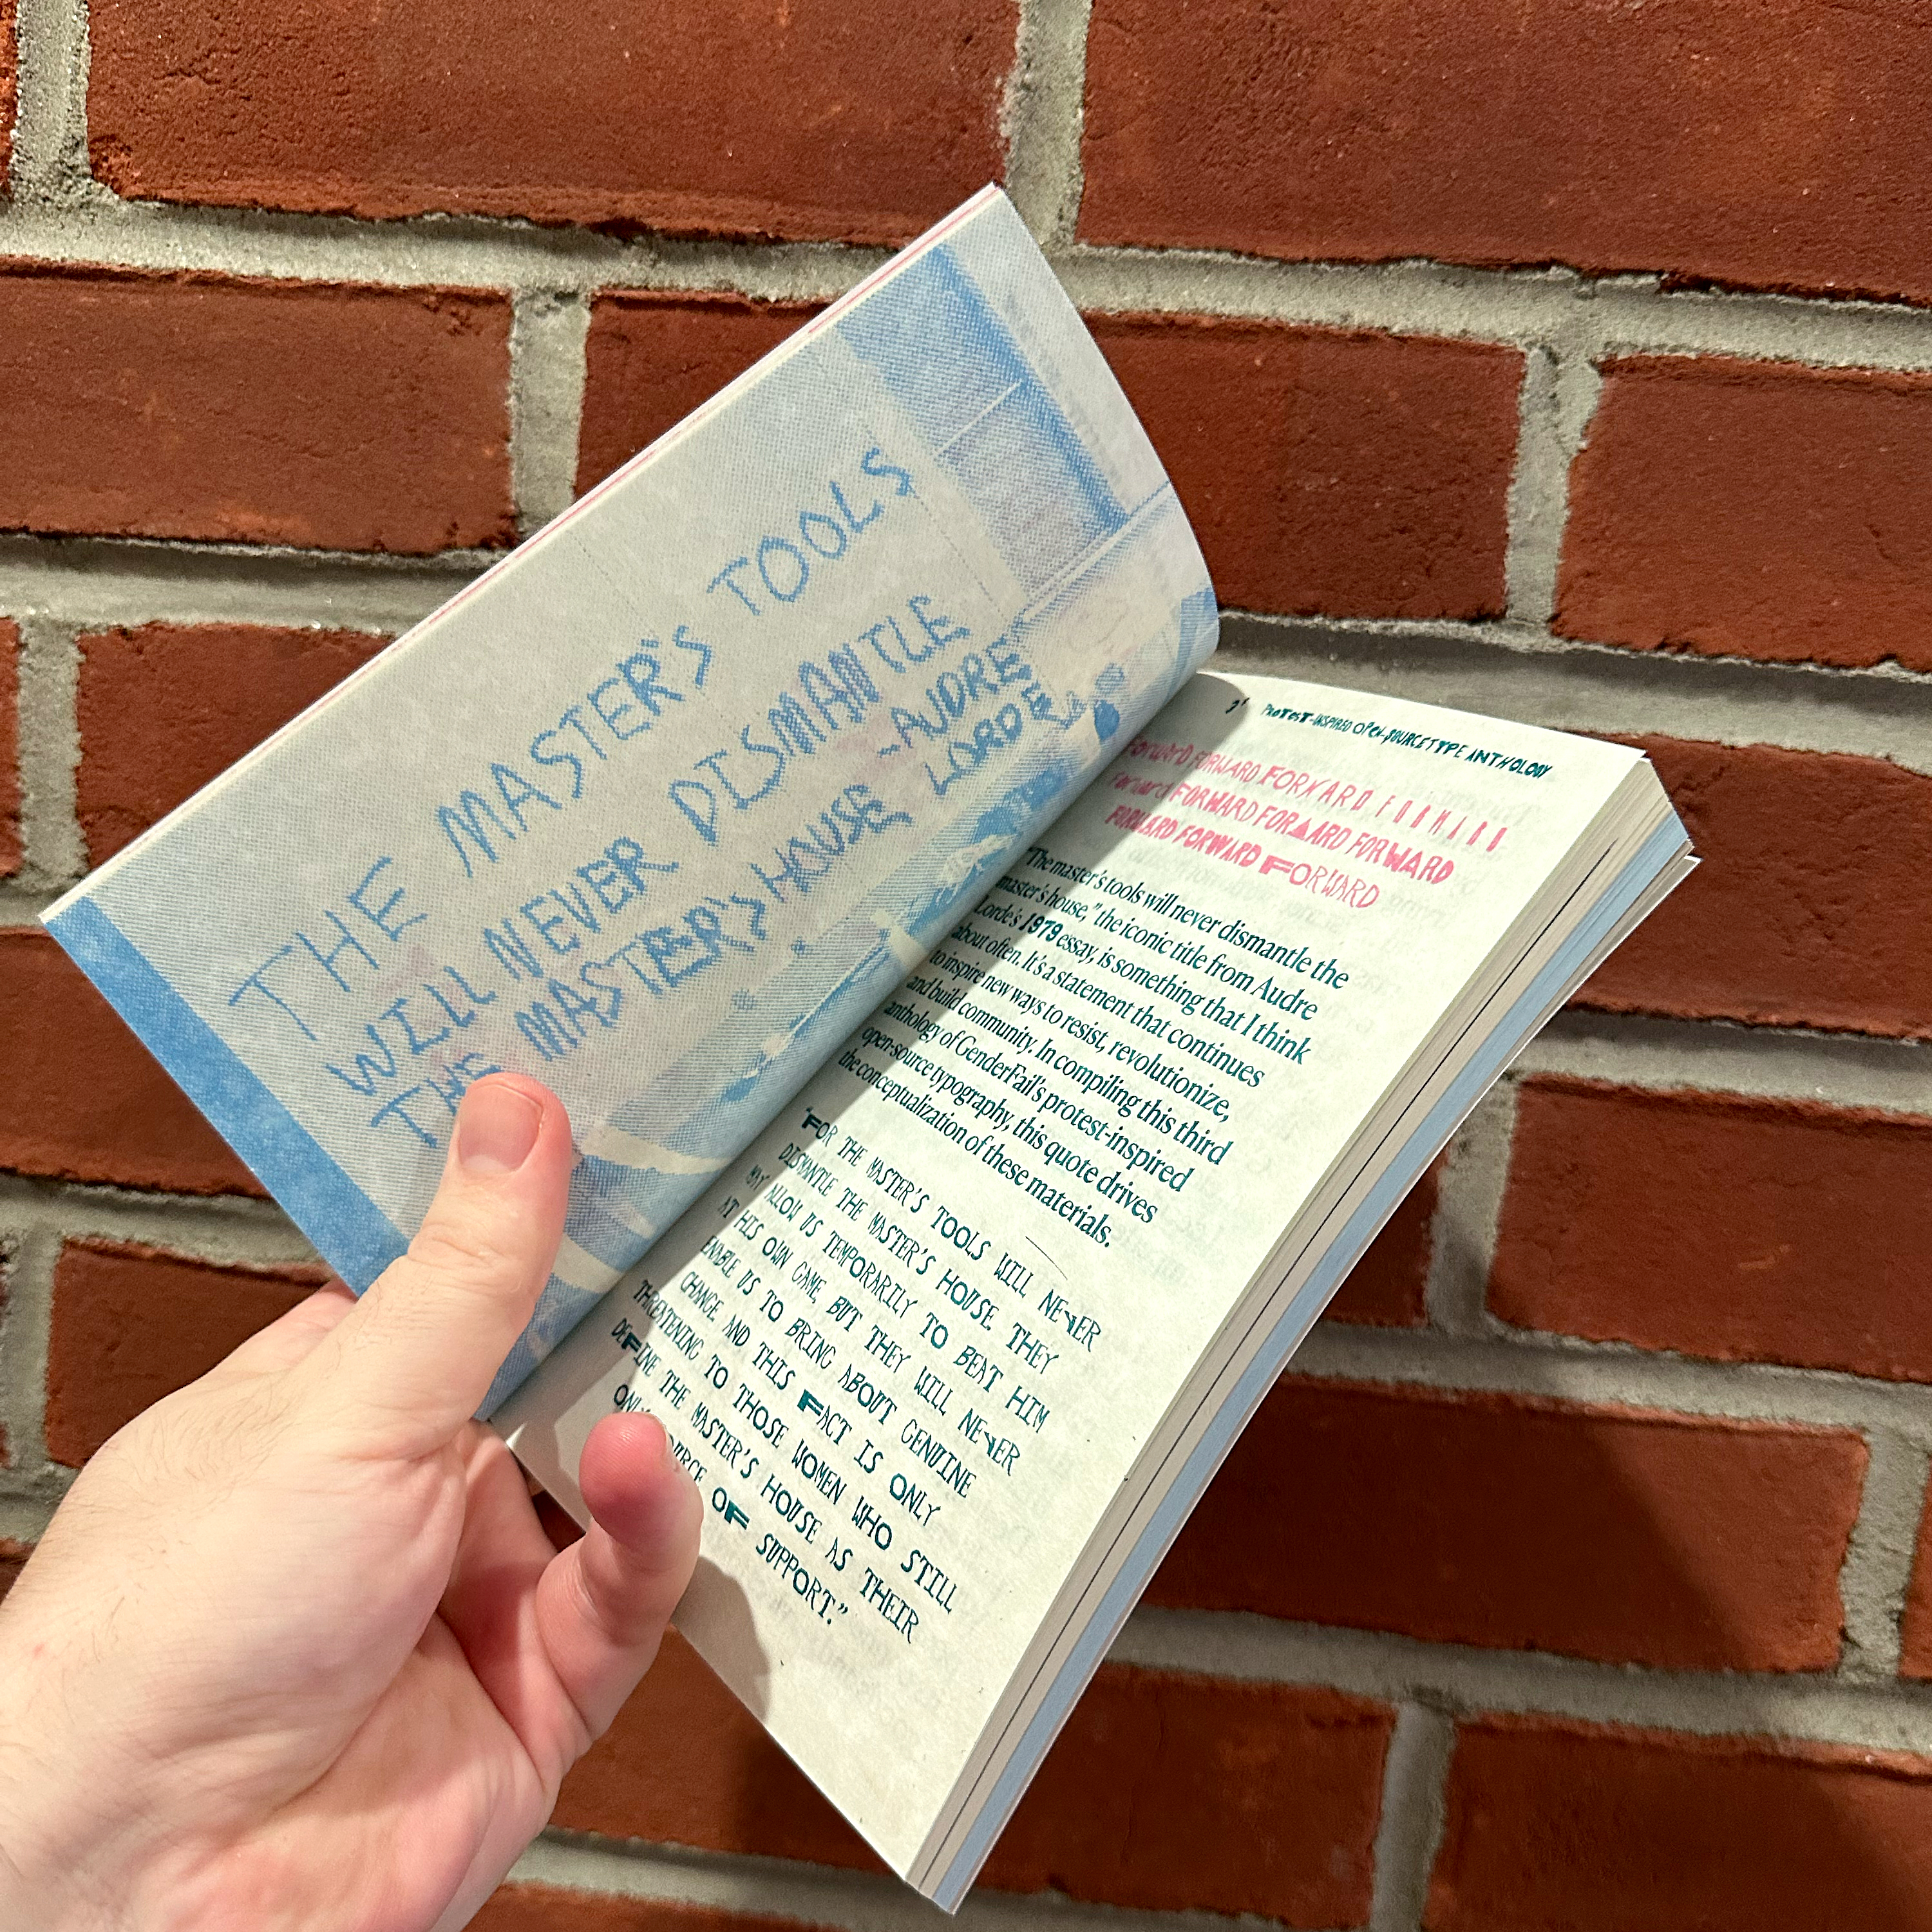 THE MASTER'S TOOLS
WILL NEVER DISMANTLE
THE MASTER'S HOUSE -AUDRE
LORDE
PROTEST-INSPIRED OPEN-SOURCE TYPE ANTHOLOGY
FORWARD FORWARD FORWARD FORWARD
FORWARD FORWARD FORWARD FORWARD
FORWARD FORWARD FORWARD
"The master's tools will never dismantle the
master's house," the iconic title from Audre
Lorde's 1979 essay, is something that I think
about often. It's a statement that continues
to inspire new ways to resist, revolutionize,
and build community. In compiling this third
anthology of GenderFail's protest-inspired
open-source typography, this quote drives
the conceptualization of these materials.
"FOR THE MASTER'S TOOLS WILL NEVER
DISMANTLE THE MASTER'S HOUSE. THEY
MAY ALLOW US TEMPORARILY TO BEAT HIM
AT HIS OWN GAME, BUT THEY WILL NEVER
ENABLE US TO BRING ABOUT GENUINE
CHANGE. AND THIS FACT IS ONLY
THREATENING TO THOSE WOMEN WHO STILL
DEFINE THE MASTER'S HOUSE AS THEIR
ONLY OF SUPPORT."